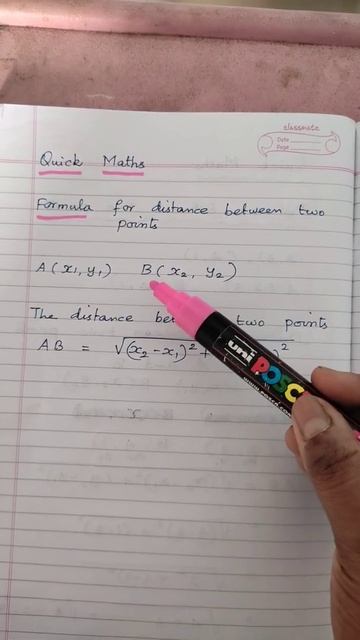 classmate
Date
Page
Quick Maths
Formula for distance between two
points
A(x₁, y₁) B(x₂, y₂)
The distance two points
AB = √(x₂-x₁)² + )²
uni POSCA